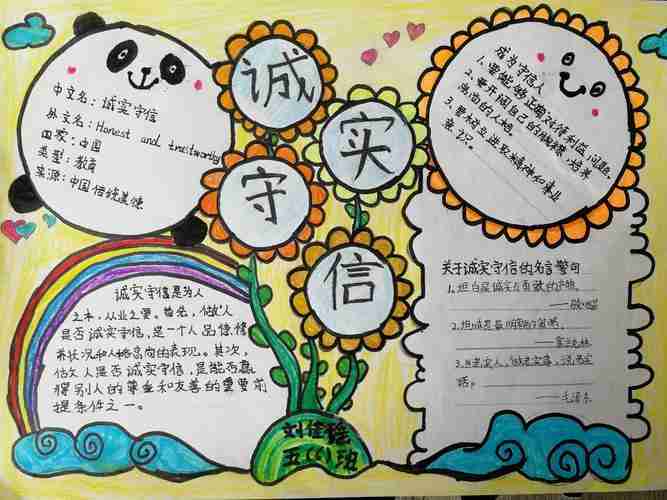 诚
实
守
信
中文名:诚实守信
外文名:Honest and trustworthy
国家:中国
类型:教育
来源:中国传统美德
成为守信人
1.要能够正确对待利益问题,
2.要开阔自己的胸襟,培养
高尚的人格,
3.要树立进取精神和事业
意识。
诚实守信是为人
之本,从业之要。首先,做人
是否诚实守信,是一个人品德修
养状况和人格高尚的表现。其次,
做人是否诚实守信,是能否赢
得别人的尊重和友善的重要前
提条件之一。
关于诚实守信的名言警句
1.坦白是诚实与勇敢的产物。
2.坦诚是最明智的
3.
话。
——毛泽东
刘佳瑶
五(1)班